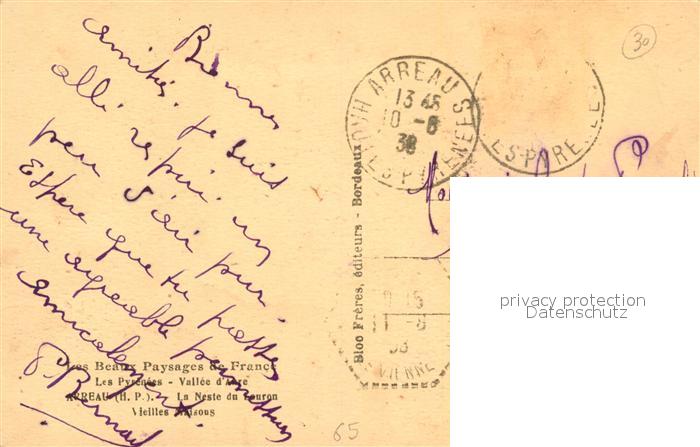 Bonnes
amitiés. Je suis
allé respirer un
peu d'air pur.
Espère que tu passes
une agréable
amicalement
P. Bernard
Les Beaux Paysages de France
Les Pyrénées - Vallée d'Aure
ARREAU (H. P.). - La Neste du Louron
Vieilles Maisons
Bloc Frères, éditeurs - Bordeaux
ARREAU
HAUTES PYRENEES
13 45
10 -8
38
ES PYRE
30
11 -8
38
VIENNE
65
privacy protection
Datenschutz